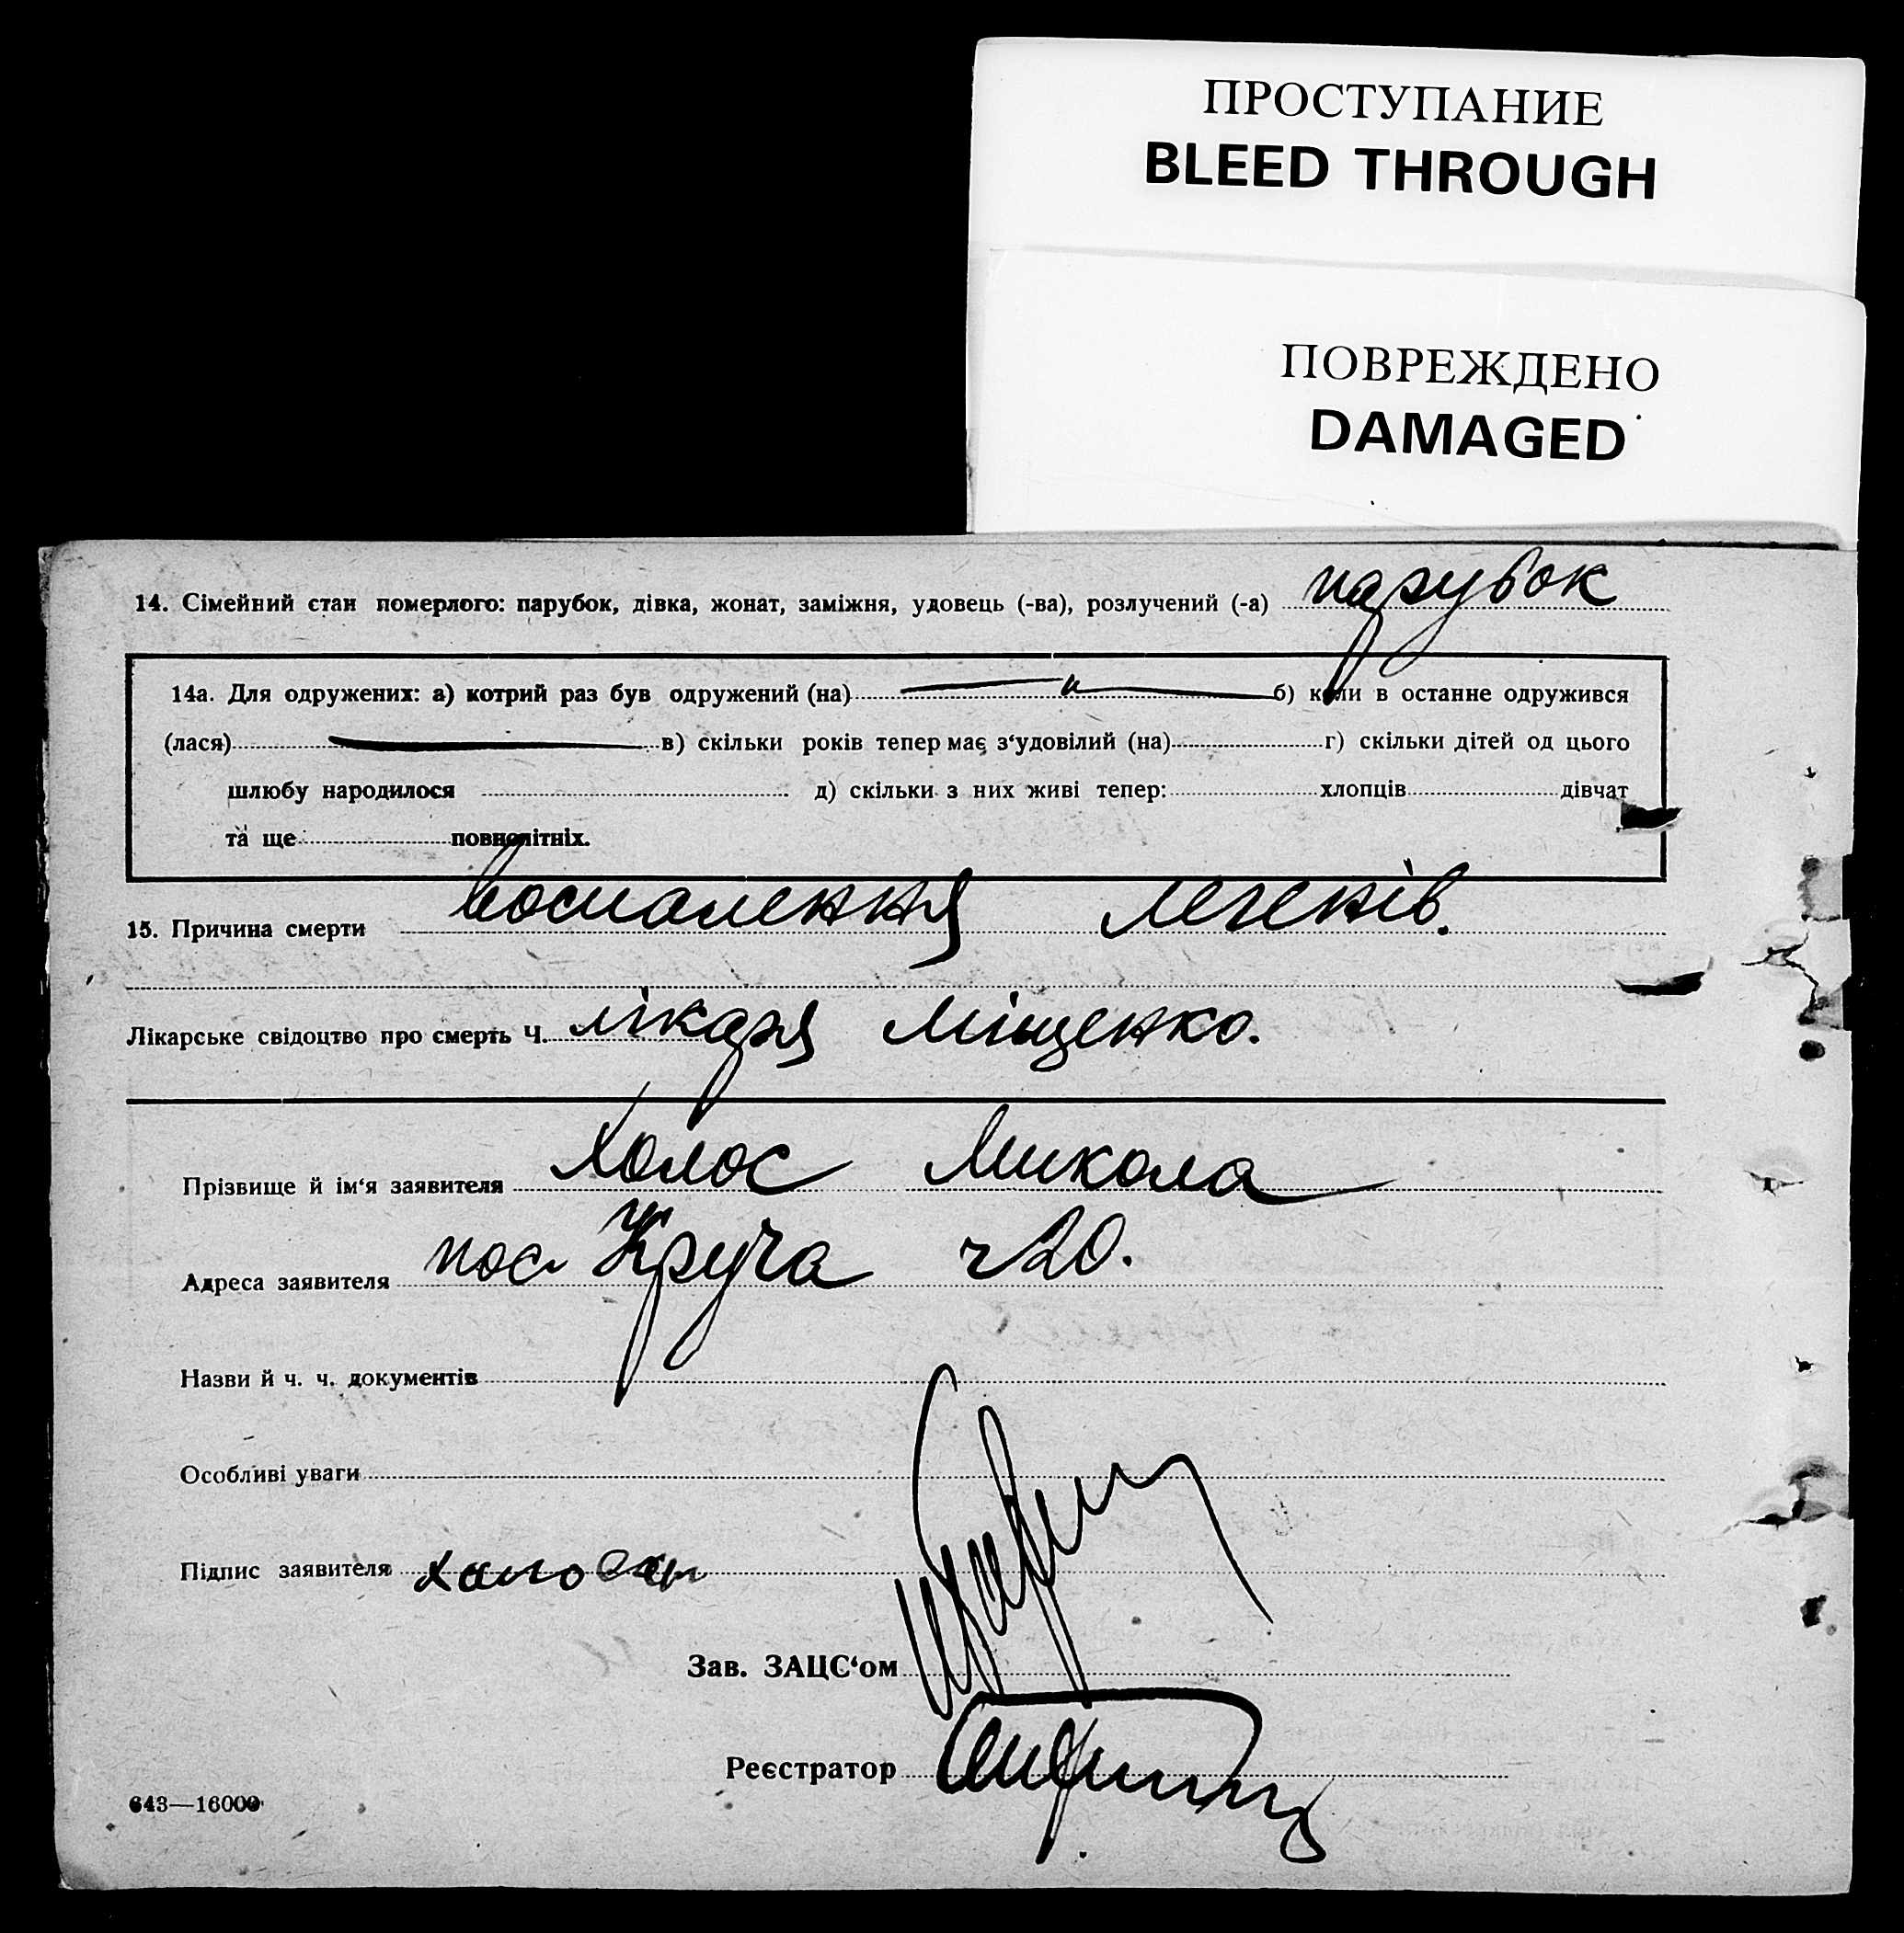 ПРОСТУПАНИЕ
BLEED THROUGH
ПОВРЕЖДЕНО
DAMAGED
14. Сімейний стан померлого: парубок, дівка, жонат, заміжня, удовець (-ва), розлучений (-а) парубок
14а. Для одружених: а) котрий раз був одружений (на) б) коли в останне одружився
(лася) в) скільки років тепер має з‘удовілий (на) г) скільки дітей од цього
шлюбу народилося д) скільки з них живі тепер: хлопців дівчат
та ще повнолітніх.
15. Причина смерти воспалення легенів.
Лікарське свідоцтво про смерть Ч. лікаря Міщенко.
Прізвище й ім‘я заявителя Холос Микола
Адреса заявителя пос Круча ч 20.
Назви й ч. ч. документів
Особливі уваги
Підпис заявителя
Зав. ЗАЦС‘ом
Реєстратор
643—16000